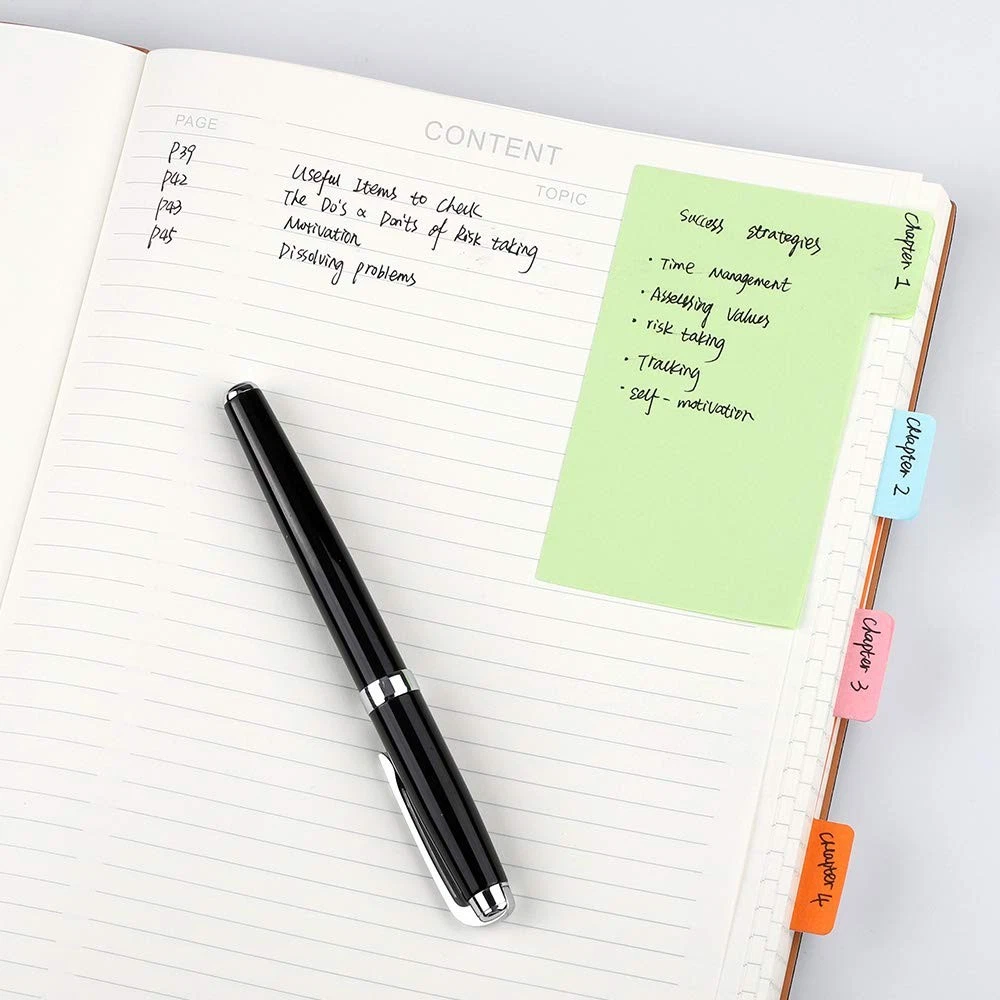 CONTENT
PAGE
TOPIC
P39 Useful Items to Check
P42 The Do's & Don'ts of Risk taking
P43 Motivation
P45 Dissolving problems
Success strategies
· Time Management
· Assessing Values
· risk taking
· Tracking
· self-motivation
Chapter 1
Chapter 2
Chapter 3
Chapter 4